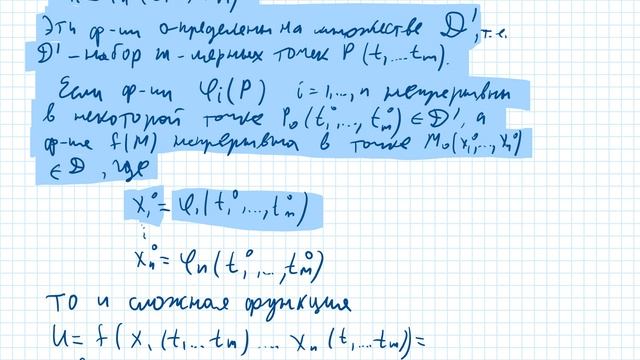 Эти ф-ии определены на множестве D', т.е.
D' – набор m-мерных точек P(t₁,...tm).
Если ф-ии φi(P) i=1,...,n непрерывны
в некоторой точке P₀(t₁°,...,tm°) ∈ D', а
ф-ия f(M) непрерывна в точке M₀(x₁°,...,xn°)
∈ D, где
x₁° = φ₁(t₁°,...,tm°)
⋮
xn° = φn(t₁°,...,tm°)
то и сложная функция
U = f(x₁(t₁...tm)....xn(t₁...tm))=